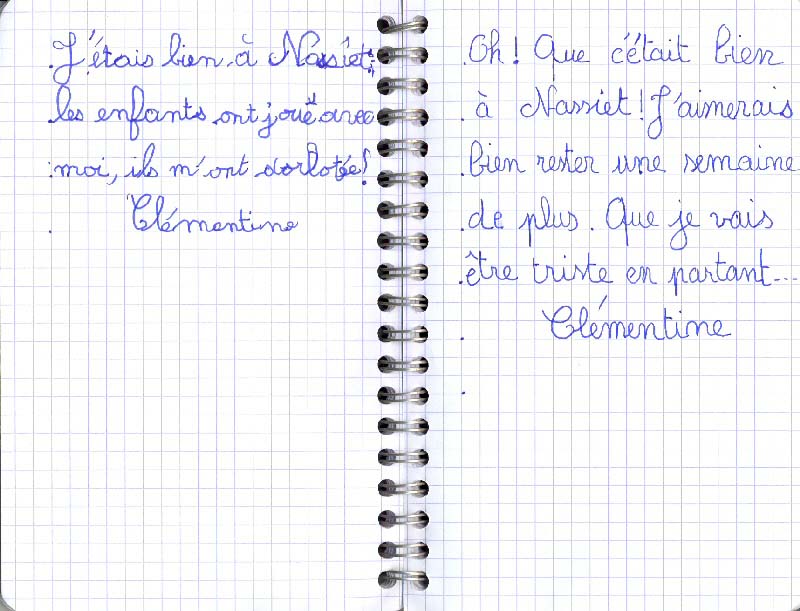 J'étais bien à Nassiet;
les enfants ont joué avec
moi, ils m'ont dorlotée!
Clémentine
Oh! Que c'était bien
à Nassiet! J'aimerais
bien rester une semaine
de plus. Que je vais
être triste en partant...
Clémentine